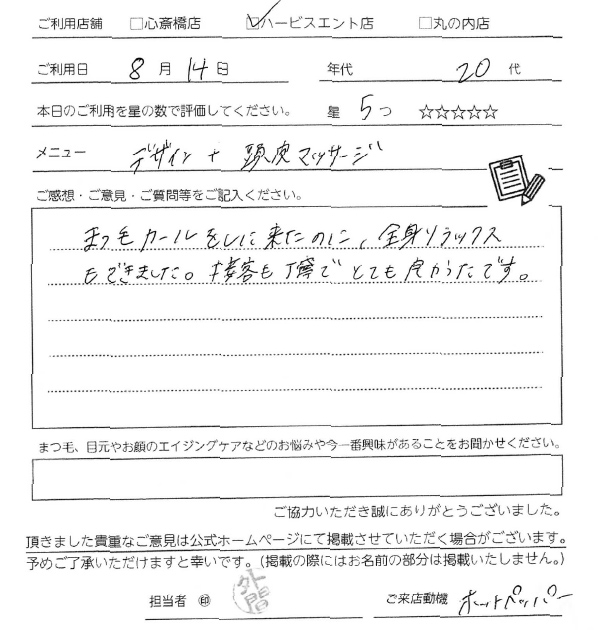 ご利用店舗 □心斎橋店 ☑ハービスエント店 □丸の内店
ご利用日 8月14日 年代 20代
本日のご利用を星の数で評価してください。 星 5つ ☆☆☆☆☆
メニュー デザイン + 頭皮マッサージ
ご感想・ご意見・ご質問等をご記入ください。
まつ毛カールをしに来たのに、全身リラックス
もできました。接客も丁寧でとても良かったです。
まつ毛、目元やお顔のエイジングケアなどのお悩みや今一番興味があることをお聞かせください。
ご協力いただき誠にありがとうございました。
頂きました貴重なご意見は公式ホームページにて掲載させていただく場合がございます。
予めご了承いただけますと幸いです。(掲載の際にはお名前の部分は掲載いたしません。)
担当者 ㊞ 外間 ご来店動機 ホットペッパー